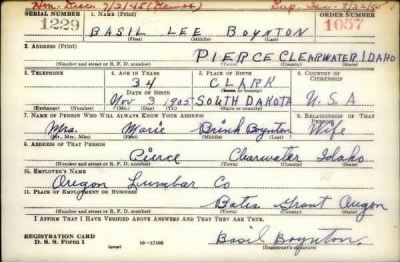 Hon. Disch 7/2/45
SERIAL NUMBER 1. NAME (Print) ORDER NUMBER
1229 BASIL LEE BOYNTON 1057
(First) (Middle) (Last)
2. ADDRESS (Print)
PIERCE CLEARWATER IDAHO
(Number and street or R. F. D. number) (Town) (County) (State)
3. TELEPHONE 4. AGE IN YEARS 5. PLACE OF BIRTH 6. COUNTRY OF CITIZENSHIP
34 CLARK
DATE OF BIRTH (Town or county)
Nov 3 1905 SOUTH DAKOTA U.S.A
(Exchange) (Number) (Mo.) (Day) (Yr.) (State or country)
7. NAME OF PERSON WHO WILL ALWAYS KNOW YOUR ADDRESS 8. RELATIONSHIP OF THAT PERSON
Mrs. Marie Brink Boynton Wife
(Mr., Mrs., Miss) (First) (Middle) (Last)
9. ADDRESS OF THAT PERSON
Pierce Clearwater Idaho
(Number and street or R. F. D. number) (Town) (County) (State)
10. EMPLOYER'S NAME
Oregon Lumbar Co
11. PLACE OF EMPLOYMENT OR BUSINESS
Bates Grant Oregon
(Number and street or R. F. D. number) (Town) (County) (State)
I AFFIRM THAT I HAVE VERIFIED ABOVE ANSWERS AND THAT THEY ARE TRUE.
REGISTRATION CARD
D. S. S. Form 1 (over) 16-17105 Basil Boynton.
(Registrant's signature)